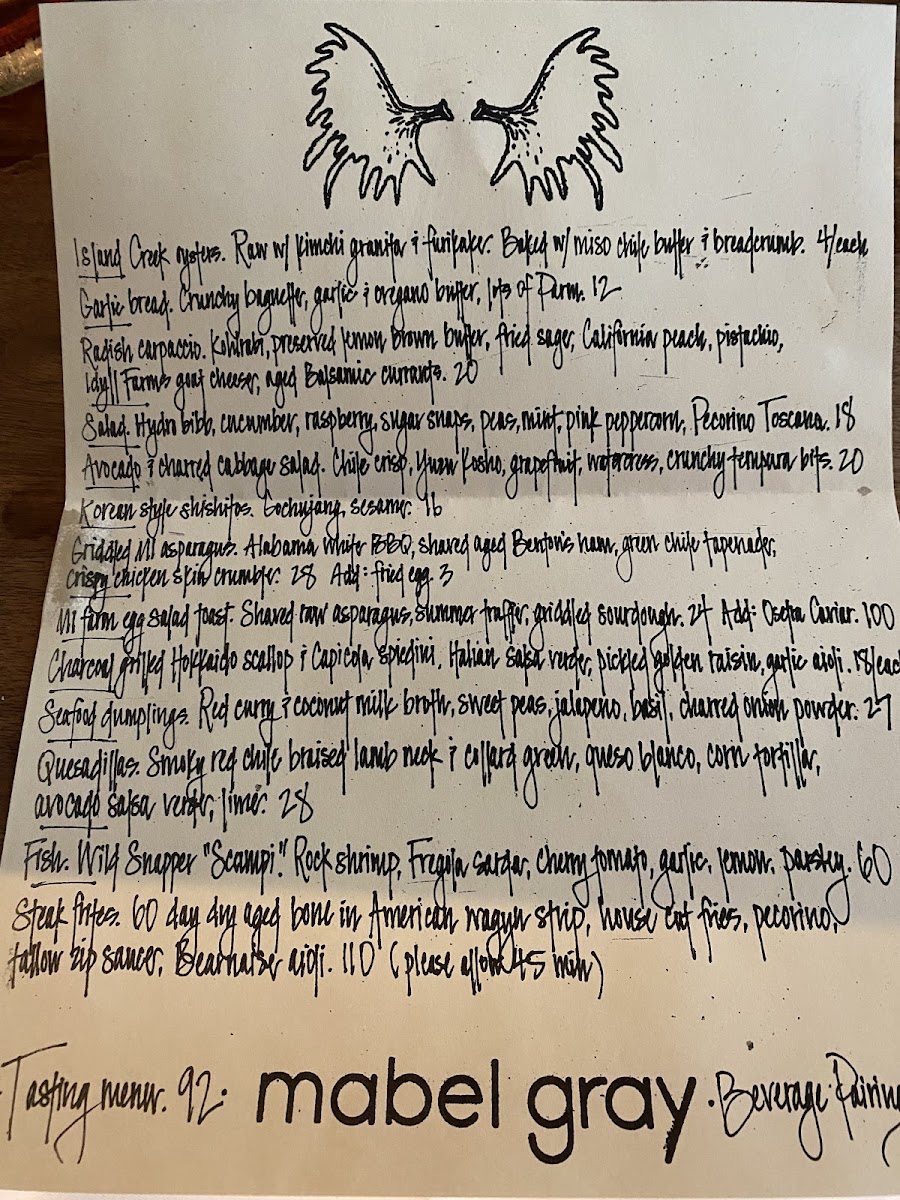 Island Creek oysters. Raw w/ kimchi granita & furikake. Baked w/ miso chile butter & breadcrumb. 4/each
Garlic bread. Crunchy baguette, garlic & oregano butter, lots of Parm. 12
Radish carpaccio. Kohlrabi, preserved lemon brown butter, fried sage, California peach, pistachio,
Idyll Farms goat cheese, aged Balsamic currants. 20
Salad. Hydro bibb, cucumber, raspberry, sugar snaps, peas, mint, pink peppercorn, Pecorino Toscana. 18
Avocado & charred cabbage salad. Chile crisp, Yuzu Kosho, grapefruit, watercress, crunchy tempura bits. 20
Korean style shishitos. Gochujang, sesame. 16
Griddled MI asparagus. Alabama white BBQ, shaved aged Benton's ham, green chile tapenade,
crispy chicken skin crumble. 28 Add: fried egg. 3
MI farm egg salad toast. Shaved raw asparagus, summer truffle, griddled sourdough. 24 Add: Osetra Caviar. 100
Charcoal grilled Hokkaido scallop & Capicola spiedini, Italian salsa verde, pickled golden raisin, garlic aioli. 18/eac
Seafood dumplings. Red curry & coconut milk broth, sweet peas, jalapeno, basil, charred onion powder. 27
Quesadillas. Smoky red chile braised lamb neck & collard green, queso blanco, corn tortilla,
avocado salsa verde, lime. 28
Fish. Wild Snapper "Scampi". Rock shrimp, Fregola sarda, cherry tomato, garlic, lemon, parsley. 60
Steak frites. 60 day dry aged bone in American wagyu strip, house cut fries, pecorino,
tallow zip sauce, Bearnaise aioli. 110 (please allow 45 min)
Tasting menu. 92. mabel gray . Beverage Pairing